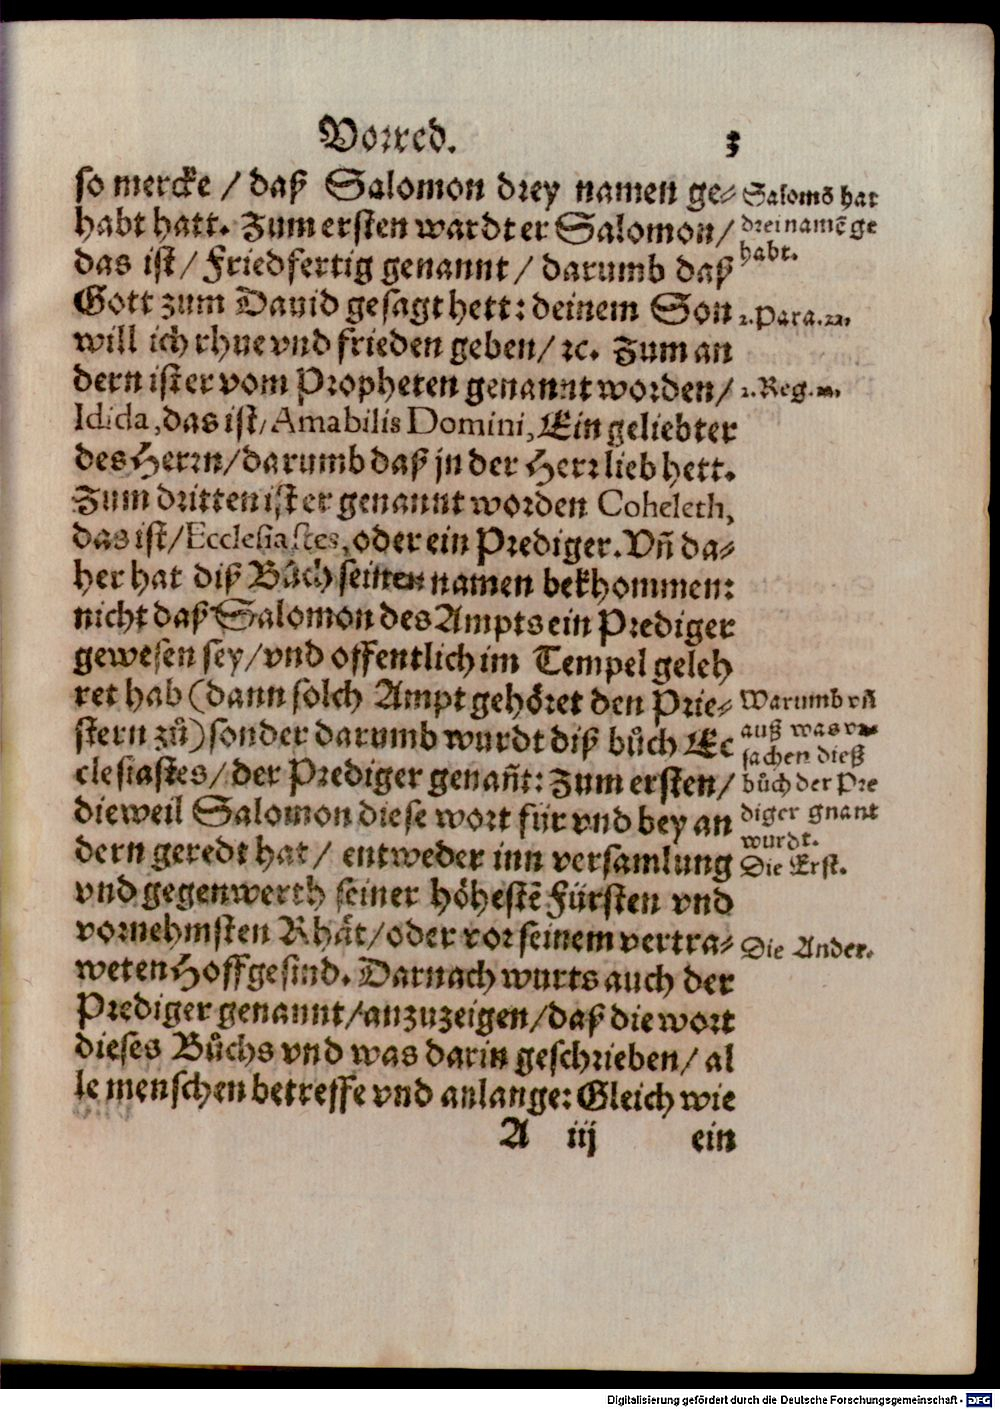 Vorred. 3
so mercke / daß Salomon drey namen ge-
habt hatt. Zum ersten wardt er Salomon /
das ist / Friedfertig genannt / darumb daß
Gott zum Dauid gesagt hett: deinem Son
will ich rhue vnd frieden geben / ꝛc. Zum an
dern ist er vom Propheten genannt worden /
Idida, das ist / Amabilis Domini, Ein geliebter
des Herrn / darumb daß jn der Herr lieb hett.
Zum dritten ist er genannt worden Coheleth,
das ist / Ecclesiastes, oder ein Prediger. Vñ da-
her hat diß Bůch seinen namen bekhommen:
nicht daß Salomon des Ampts ein Prediger
gewesen sey / vnd offentlich im Tempel geleh
ret hab (dann solch Ampt gehöret den Prie-
stern zů) sonder darumb wurdt diß bůch Ec
clesiastes / der Prediger genañt: Zum ersten /
dieweil Salomon diese wort für vnd bey an
dern geredt hat / entweder inn versamlung
vnd gegenwerth seiner höhestē Fürsten vnd
vornehmsten Rhät / oder vor seinem vertra-
weten Hoffgesind. Darnach wurts auch der
Prediger genannt / anzuzeigen / daß die wort
dieses Bůchs vnd was darin geschrieben / al
le menschen betreffe vnd anlange: Gleich wie
A iij ein
Salomō hat
drei namē ge
habt.
1. Para. 22.
2. Reg. 12.
Warumb vñ
auß was vr-
sachen dieß
bůch der Pre
diger gnant
wurdt.
Die Erst.
Die Ander.
Digitalisierung gefördert durch die Deutsche Forschungsgemeinschaft - DFG